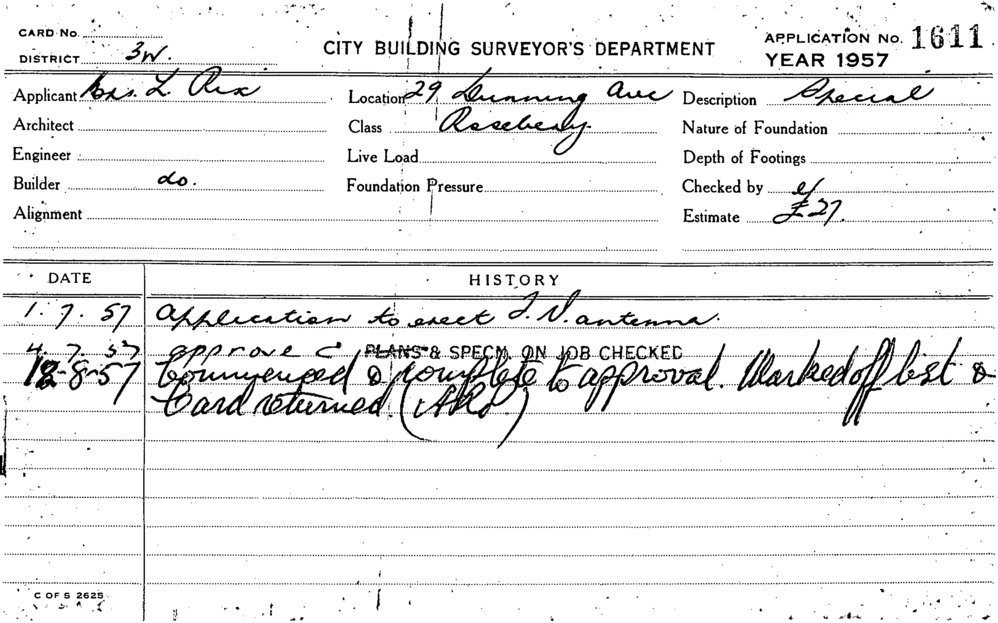 CARD No.
DISTRICT 3W.
CITY BUILDING SURVEYOR'S DEPARTMENT
APPLICATION No. 1611
YEAR 1957
Applicant Mrs. L. Rix Location 29 Dunning Ave Description Special
Architect Class Rosebery. Nature of Foundation
Engineer Live Load Depth of Footings
Builder do. Foundation Pressure Checked by
Alignment Estimate £27.
DATE HISTORY
1. 7. 57 Application to erect T.V. antenna.
4. 7. 57 approve C PLANS & SPECN. ON JOB CHECKED
12-8-57 Commenced & complete to approval. Marked off list &
Card returned.
C OF S 2625